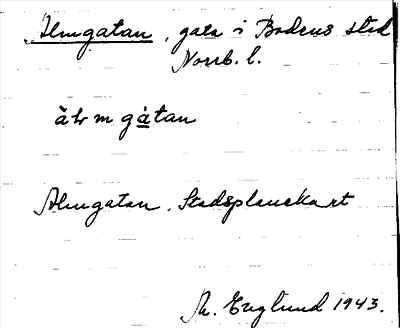 Almgatan, gata i Bodens stad
Norrb. l.
àlv m gàtan
Almgatan. Stadsplanekart
Th. Englund 1943.